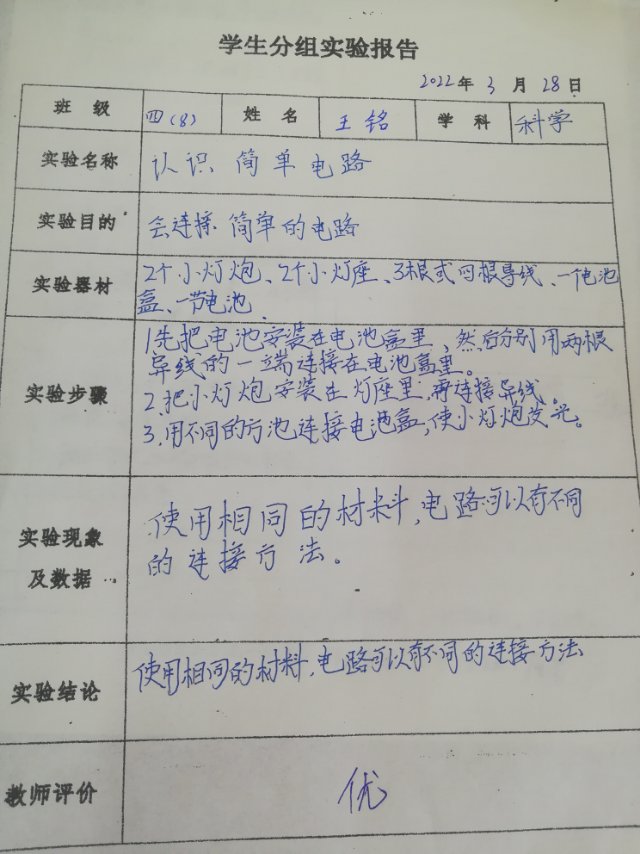 学生分组实验报告
2022年 3 月 28 日
班 级 四(8) 姓 名 王铭 学 科 科学
实验名称 认识 简单电路
实验目的 会连接 简单的电路
实验器材 2个小灯炮、2个小灯座、3根或四根导线、一个电池
盒、一节电池
实验步骤 1先把电池安装在电池盒里,然后分别用两根
导线的一端连接在电池盒里。
2.把小灯炮安装在灯座里,再连接导线。
3.用不同的方池连接电池盒,使小灯炮发光。
实验现象
及数据
使用相同的材料,电路可以有不同
的连接方法。
实验结论 使用相同的材料,电路可以有不同的连接方法
教师评价 优